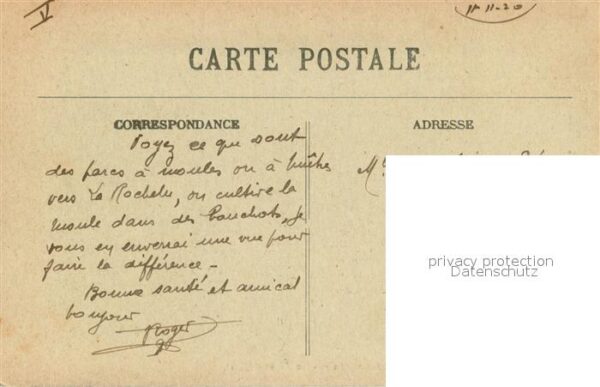 V
11-11-20
CARTE POSTALE
CORRESPONDANCE
ADRESSE
Voyez ce que sont
des parcs à moules ou à huîtres
vers La Rochelle, on cultive la
moule dans des bouchots, je
vous en enverrai une vue pour
faire la différence -
Bonne santé et amical
bonjour
Roger
privacy protection
Datenschutz